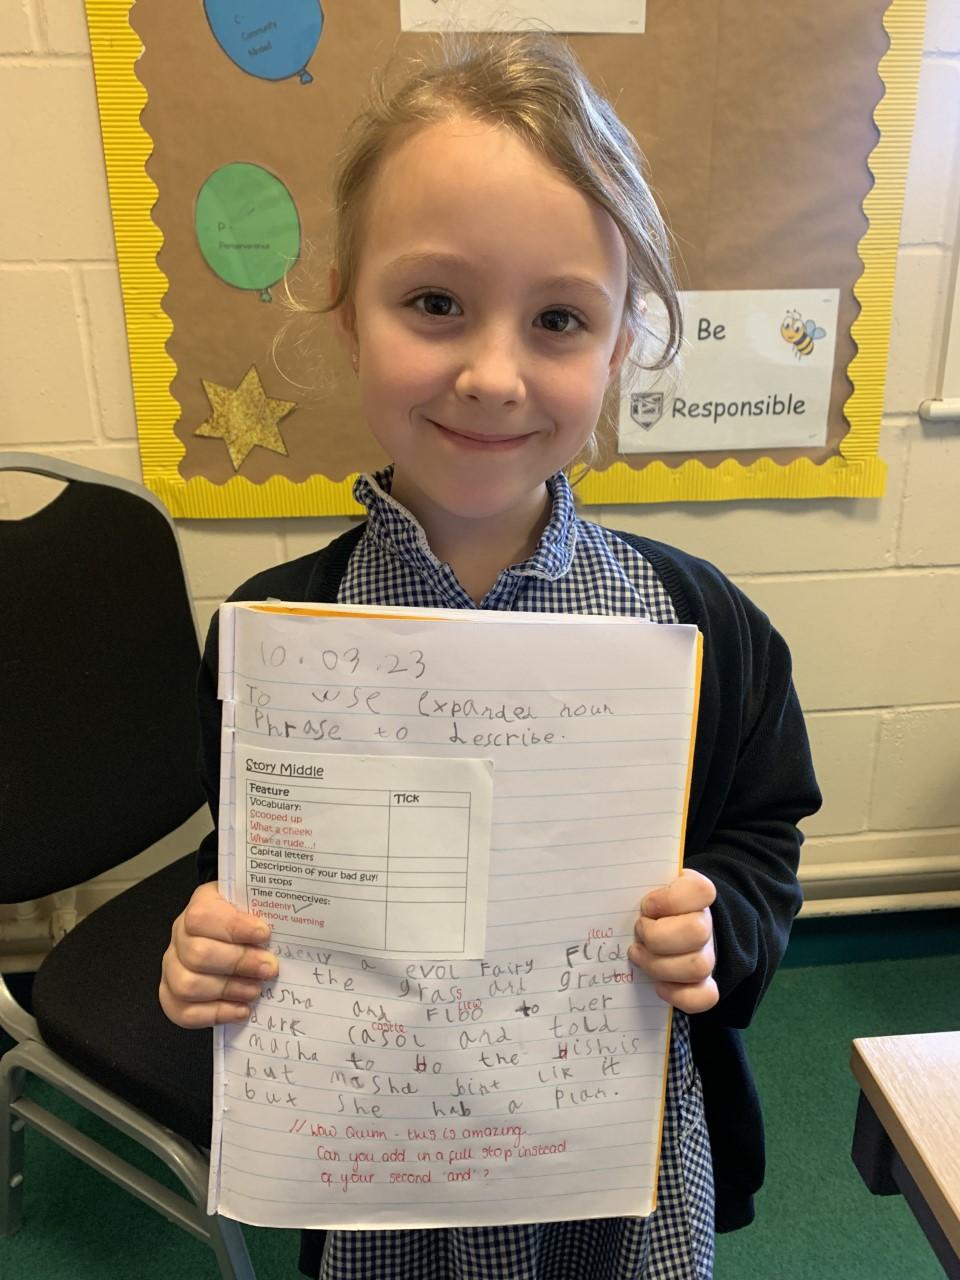 C -
Community
Minded
P -
Perserverence
Be
Responsible
10.03.23
To use expanded noun
Phrase to describe.
Story Middle
Feature Tick
Vocabulary:
Scooped up
What a cheek!
What a rude...!
Capital letters
Description of your bad guy!
Full stops
Time connectives:
Suddenly
Without warning
flew
a evol Fairy
the grass and grabbed
masha and Floo to her
flew
dark casol and told
castle
masha to do the dishis
but masha bint lik it
but she hab a plan.
// Wow Quinn - this is amazing.
Can you add in a full stop instead
of your second 'and'?